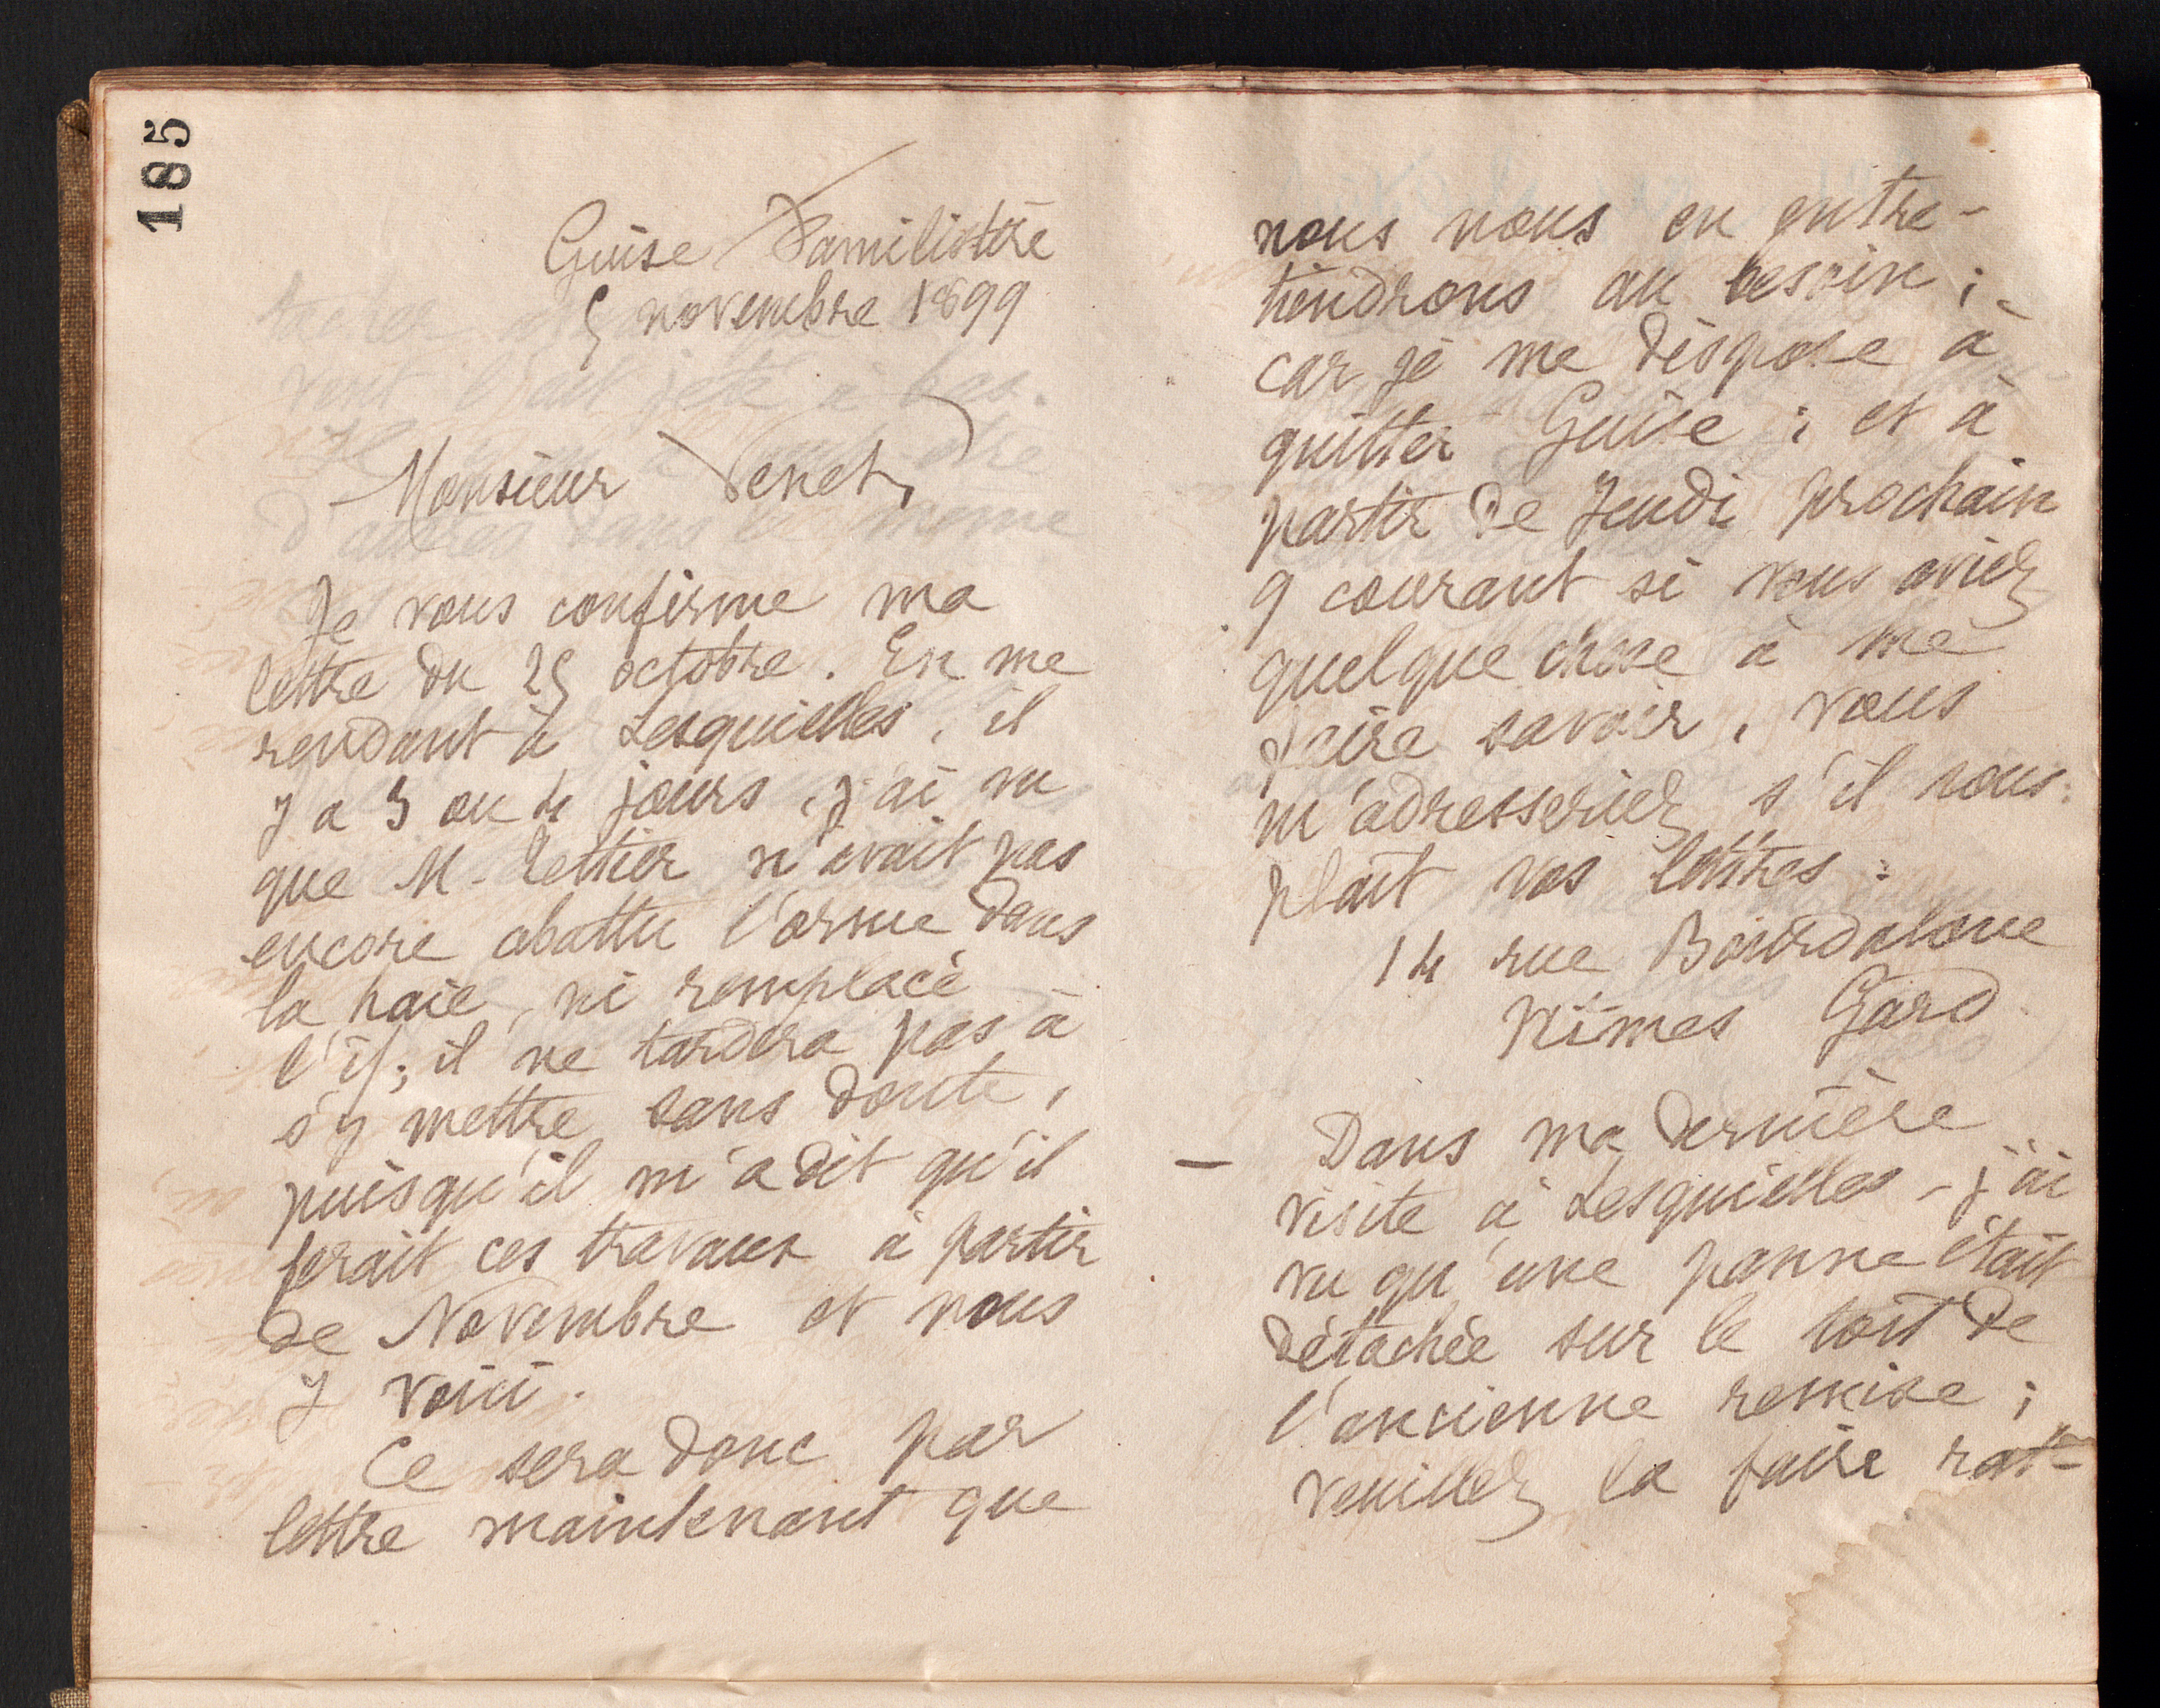 185
Guise Familistère
5 novembre 1899
Monsieur Venet,
Je vous confirme ma
lettre du 25 octobre. En me
rendant à Lesquielles, il
y a 3 ou 4 jours, j'ai vu
que M. Lettier n'avait pas
encore abattu l'orme dans
la haie, ni remplacé
l'if; il ne tardera pas à
s'y mettre sans doute,
puisqu'il m'a dit qu'il
ferait ces travaux à partir
de Novembre et nous
y voici.
Ce sera donc par
lettre maintenant que
nous nous en entre-
tiendrons au besoin;
car je me dispose à
quitter Guise; et à
partir de Jeudi prochain
9 courant si vous aviez
quelque chose à me
faire savoir, vous
m'adresseriez s'il vous
plaît vos lettres:
14 rue Bourdaloue
Nîmes Gard
— Dans ma dernière
visite à Lesquielles - j'ai
vu qu'une panne était
détachée sur le toit de
l'ancienne remise;
veuillez la faire rat-